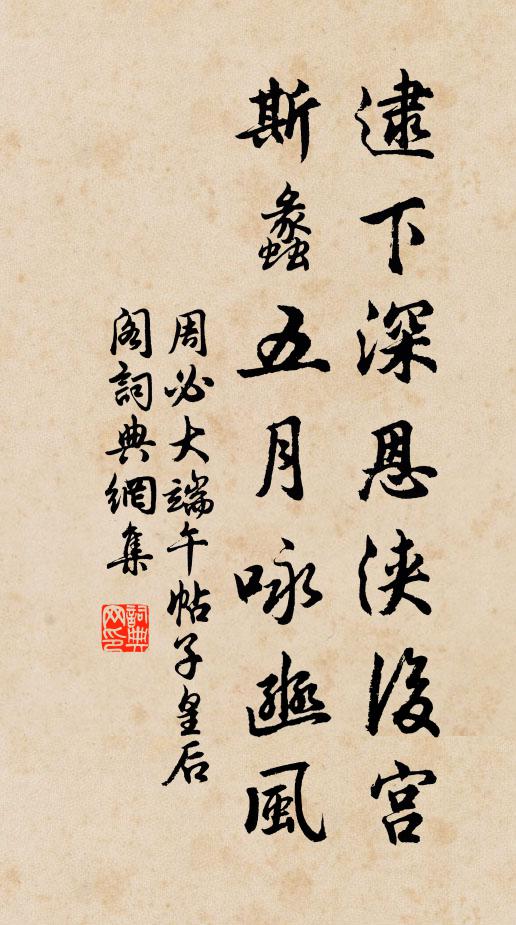 逮下深恩浹後宮
斯螽五月咏豳風
周必大端午帖子皇后
閣詞典網集
詞典网印